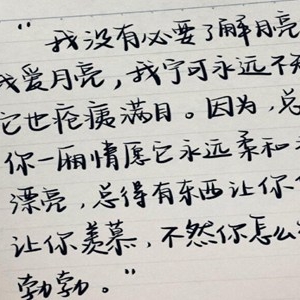 “我没有必要了解月亮
我爱月亮，我宁可永远不知
它也疮痍满目。因为，总
你一厢情愿它永远柔和
漂亮，总得有东西让你
让你羡慕，不然你怎么
勃勃。”